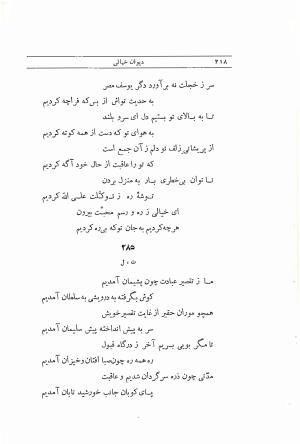 ۲۱۸
دیوان خیالی
سر ز خجلت نه برآورد دگر یوسف مصر
به حدیث تواش از بس‌که فراچه کردیم
تا به بالای تو بستیم دل ای سرو بلند
به هوای تو که دست از همه کوته کردیم
از پریشانی زلف تو دلم ز آن جمع است
که تو را عاقبت از حال خود آگه کردیم
تا توان بی‌خطری بار به منزل بردن
توشهٔ ره ز توکّلت علی الله کردیم
ای خیالی ز ره و رسم محبّت بیرون
هرچه کردیم به جان تو که بی‌ره کردیم
۲۸۵
ت ، ل
ما ز تقصیر عبادت چون پشیمان آمدیم
کوش بگرفته به درویشی به سلطان آمدیم
همچو موران حقیر از غایت تقصیر خویش
سر به پیش انداخته پیش سلیمان آمدیم
تا مگر بویی بریم آخر ز درگاه قبول
ره همه ره چون صبا افتان و خیزان آمدیم
مدّتی چون ذره سرگردان شدیم و عاقبت
پای کوبان جانب خورشید تابان آمدیم